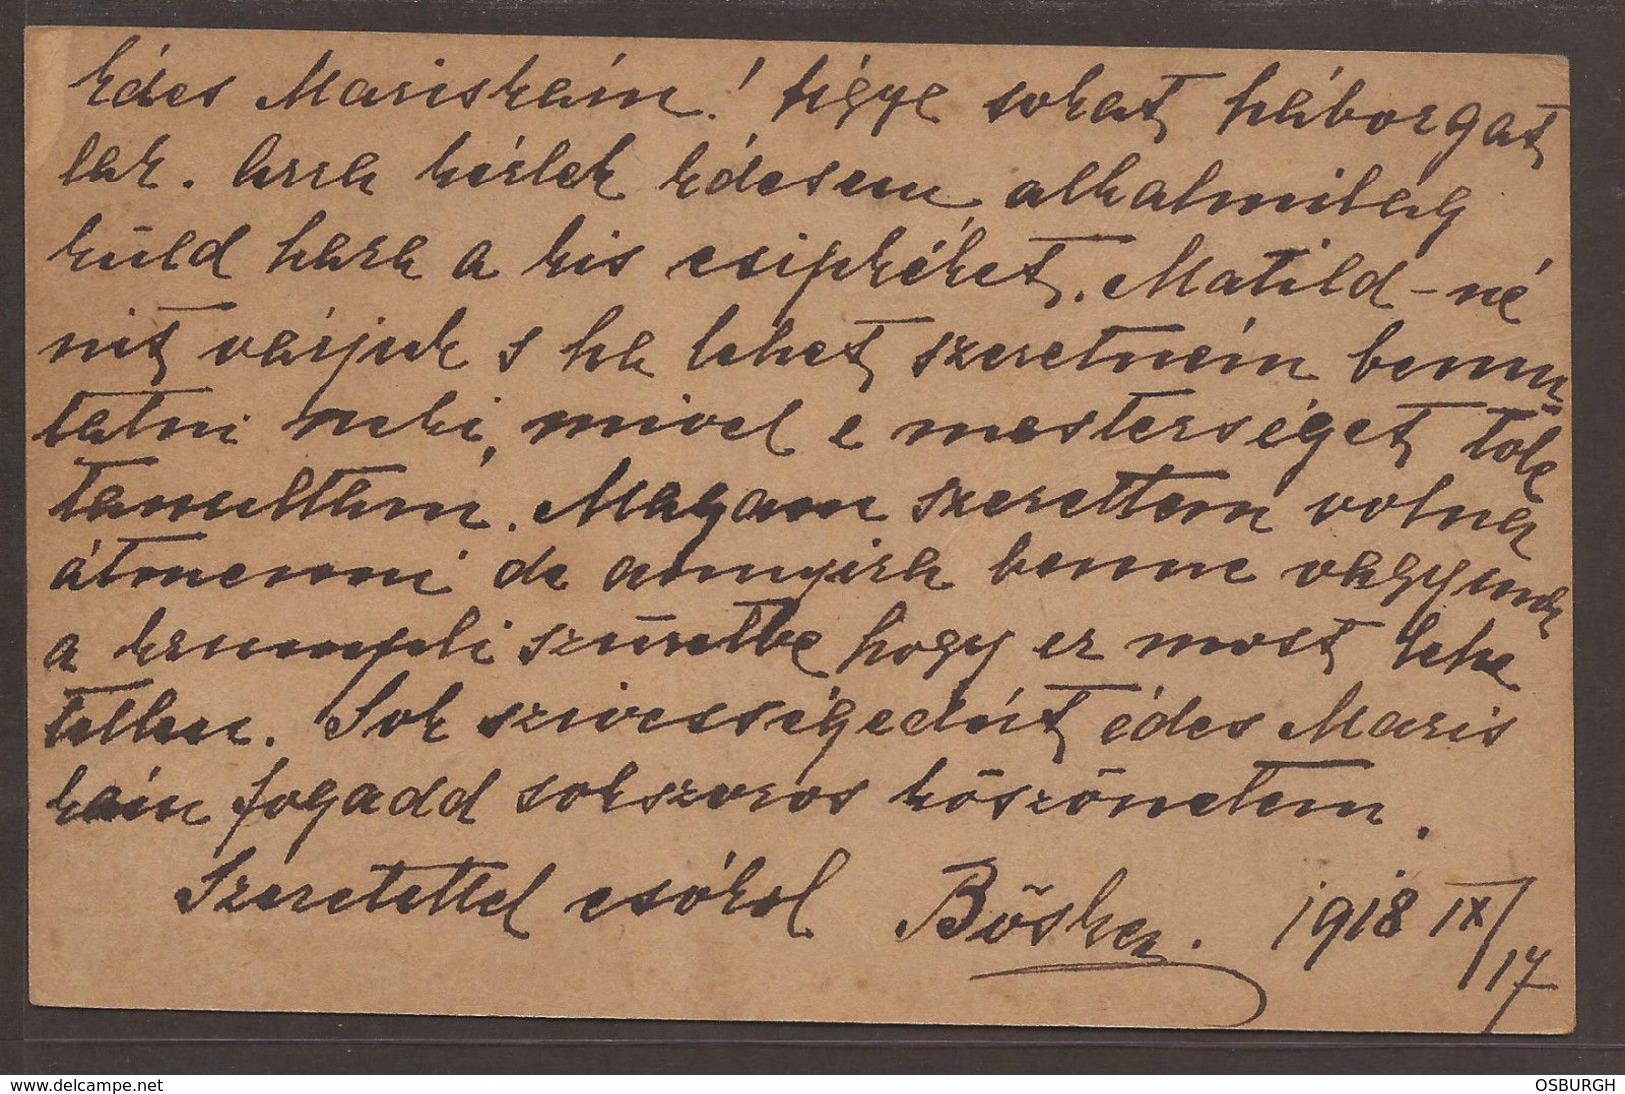 Édes Mariskám! Úgye sokat háborgat
lak. Arra kérlek édesem, alkalmilag
küld haza a kis csipkéket. Matild-né
nit várjuk s ha lehet szeretném bemu-
tatni neki, mivel e mesterséget tőle
tanultam. Magam szerettem volna
átmenni de annyira benne vagyunk
a krumpli szüretbe hogy ez most lehe
tetlen. Sok szivességedért édes Maris
kám fogadd sokszoros köszönetem.
Szeretettel csókol Böske. 1918 IX/17
delcampe.net
OSBURGH